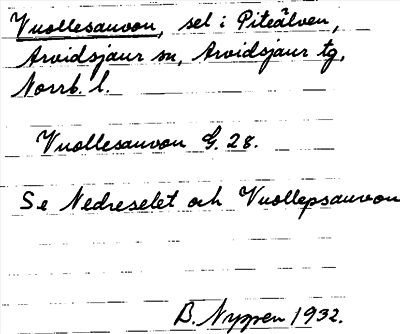 Vuollesauvon, sel i Piteälven,
Arvidsjaur sn, Arvidsjaur tg,
Norrb. l.
Vuollesauvon G. 28.
Se Nedreselet och Vuollepsauvon
B. Nyppen 1932.